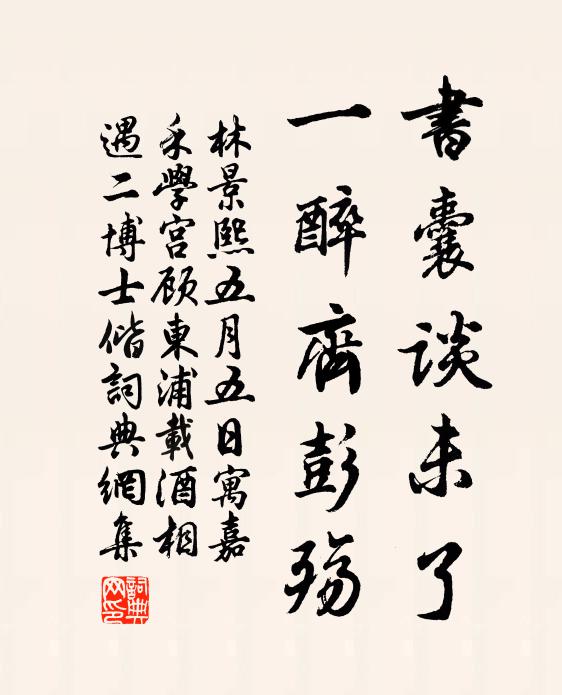 書囊談未了
一醉齊彭殤
林景熙五月五日寓嘉
禾學宮顾東浦載酒相
遇二博士偕詞典網集
詞典网印